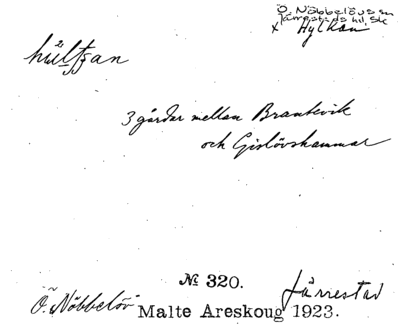 Ö. Nöbbelövs sn
Järrestads hd, Sk
x Hylkan
hültsan
3 gårdar mellan Brantevik
och Gislövshammar
№ 320.
Ö. Nöbbelöv Malte Areskoug 1923. Järrestad